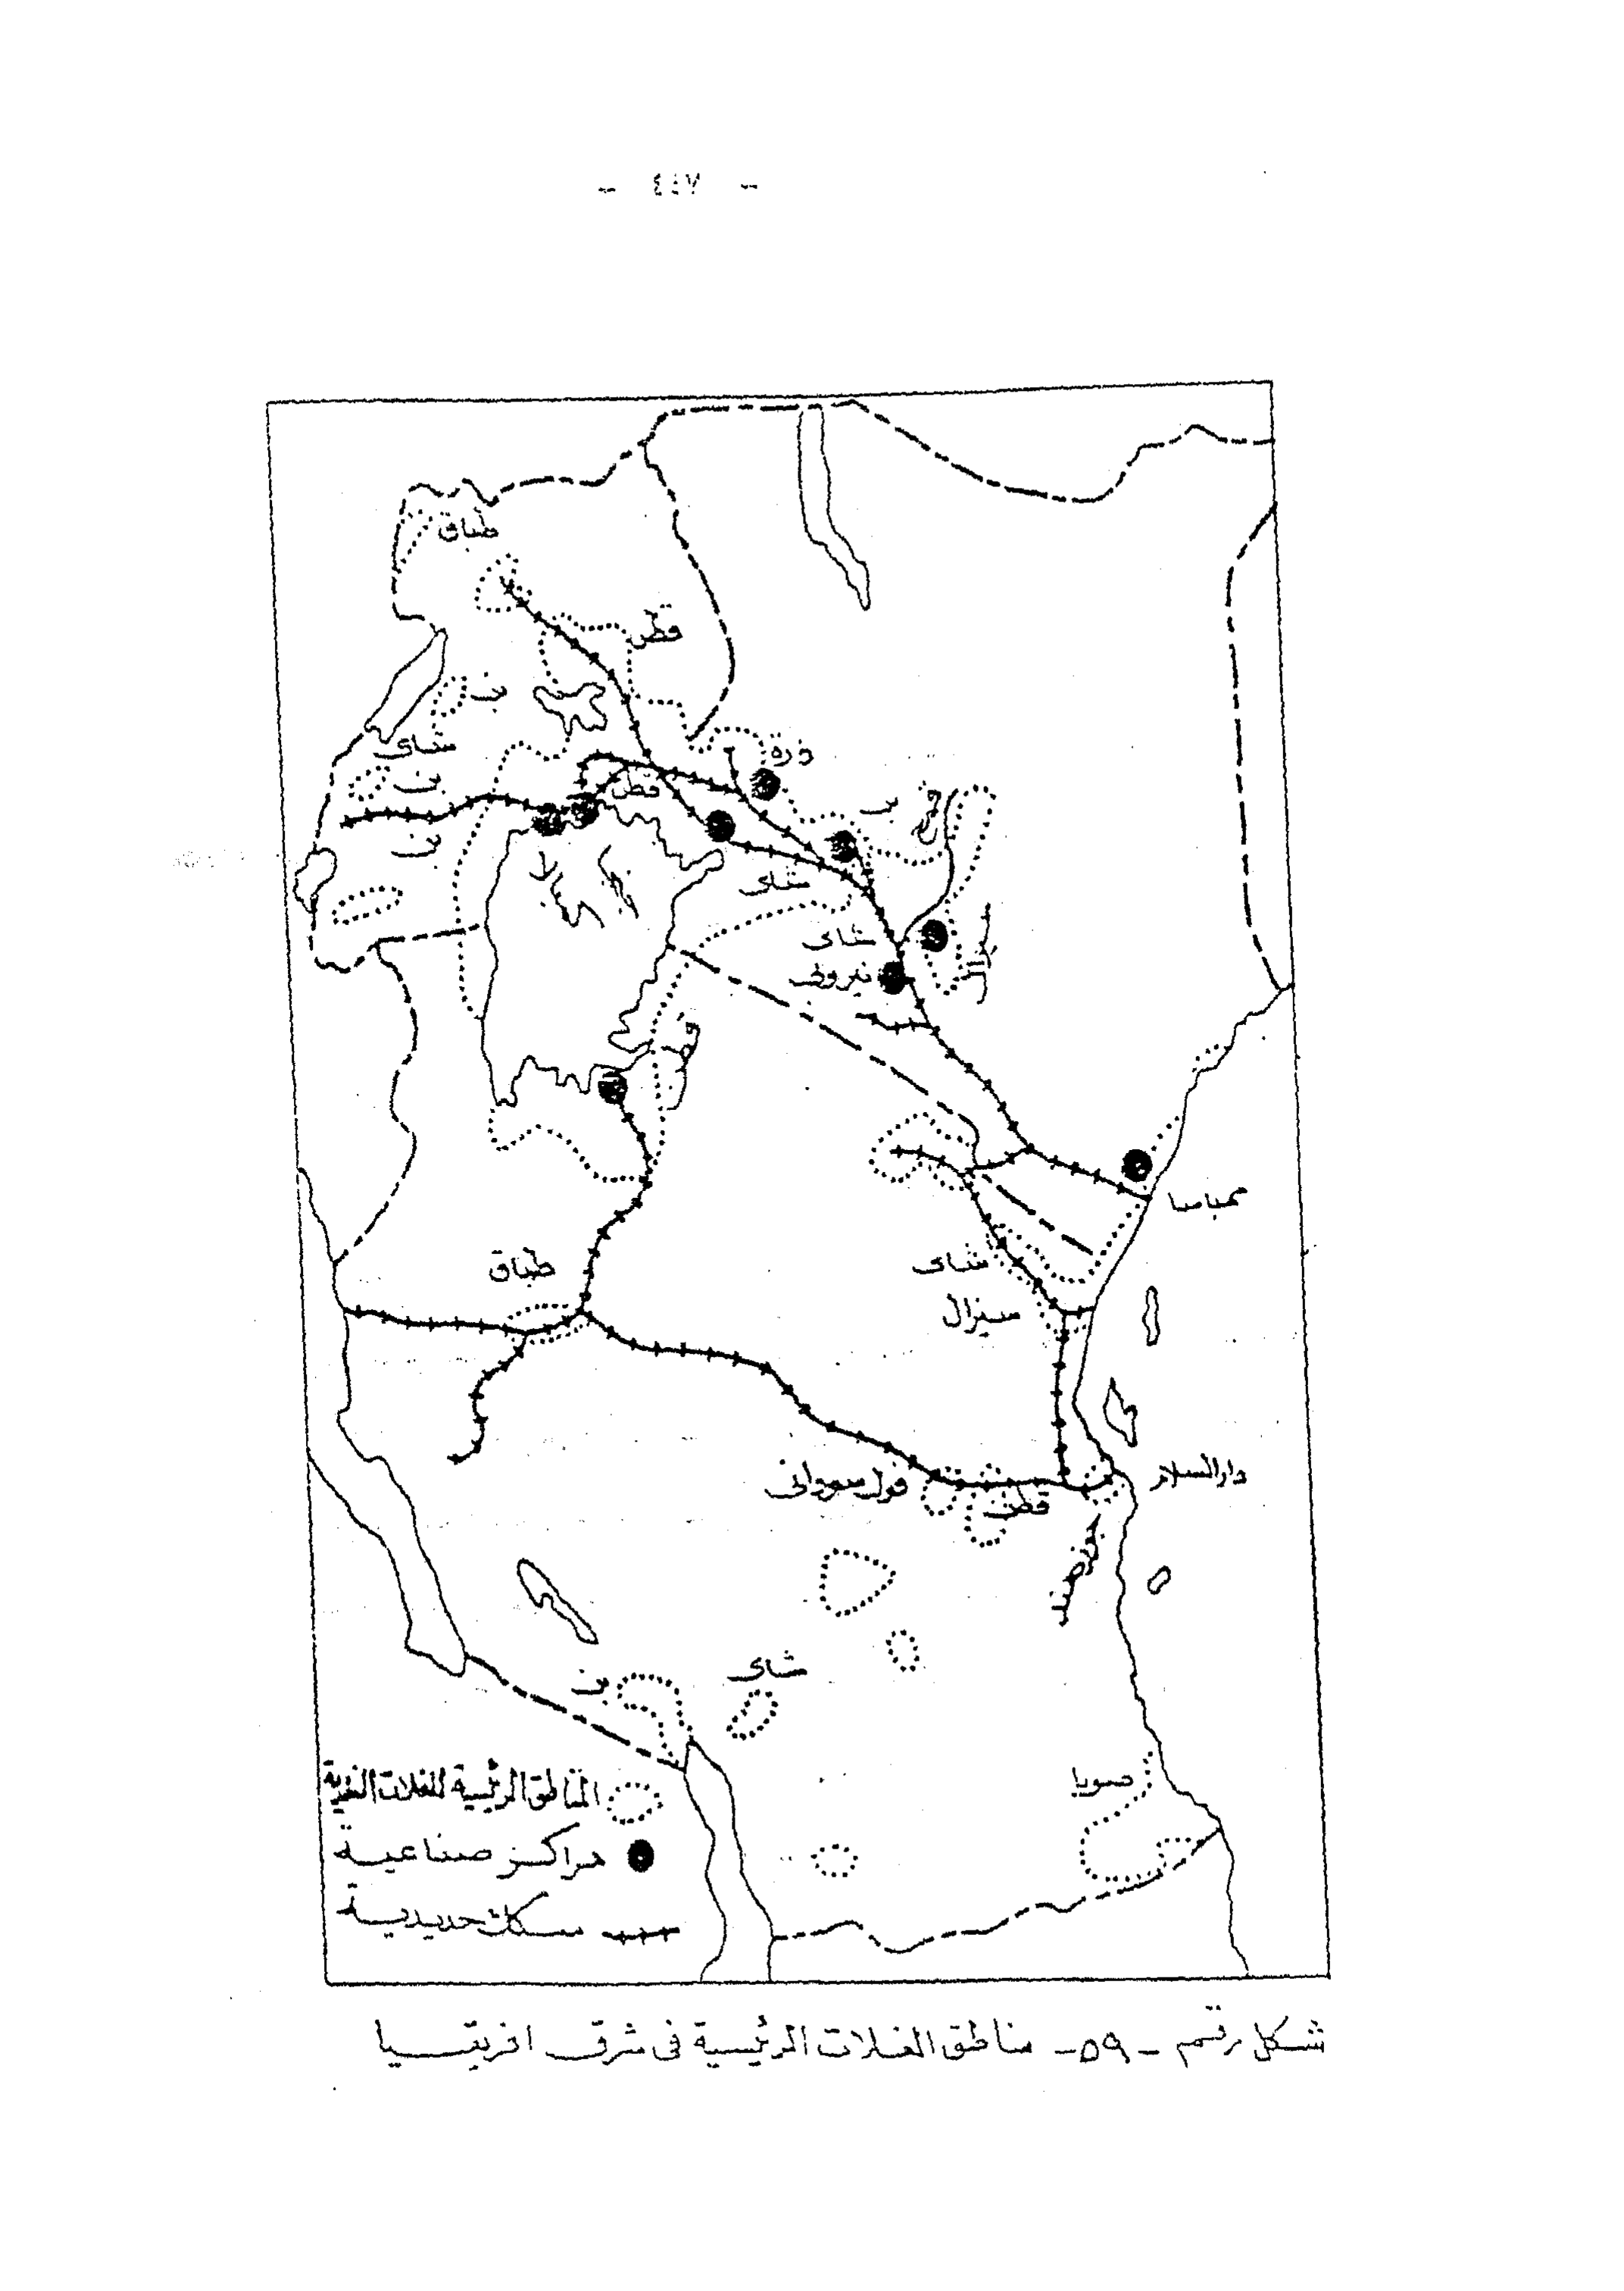 - ٤٤٧ -
طباق
قطن
بن
شاى
ذرة
بن
قطن
بن
بن
شاى
شاى
نيروبى
قطن
ممباسا
طباق
شاى
سيزال
دار السلام
فول سودانى
قطن
شاى
بن
صويا
المناطق الرئيسية للغلات النقدية
مراكز صناعية
سكك حديدية
شكل رقم - ٥٩ - مناطق الغلات الرئيسية فى شرق افريقيا